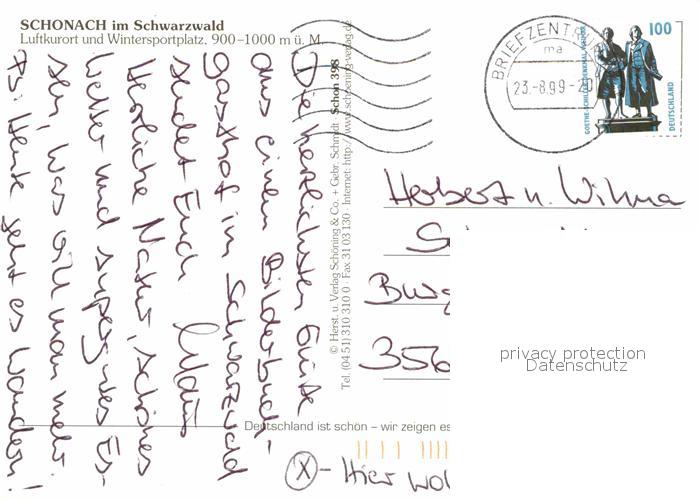 SCHONACH im Schwarzwald
Luftkurort und Wintersportplatz, 900–1000 m ü. M.
Die herzlichsten Grüße
aus einem Bilderbuch-
gasthof im Schwarzwald
sendet Euch Klaus
Herrliche Natur, schönes
Wetter und supergutes Es-
sen, was will man mehr!
PS: Heute geht es wandern!
© Herst. u. Verlag Schöning & Co. + Gebr. Schmidt · Schon 398
Tel. (04 51) 310 310 0 · Fax 31 03 130 · Internet: http://www.schoening-verlag.de
BRIEFZENTRUM
ma
23.-8.99-20
100
DEUTSCHLAND
GOETHE-SCHILLER-DENKMAL WEIMAR
Herbert u. Wilma
S
Burg
356
privacy protection
Datenschutz
Deutschland ist schön – wir zeigen es
(X) - Hier wo